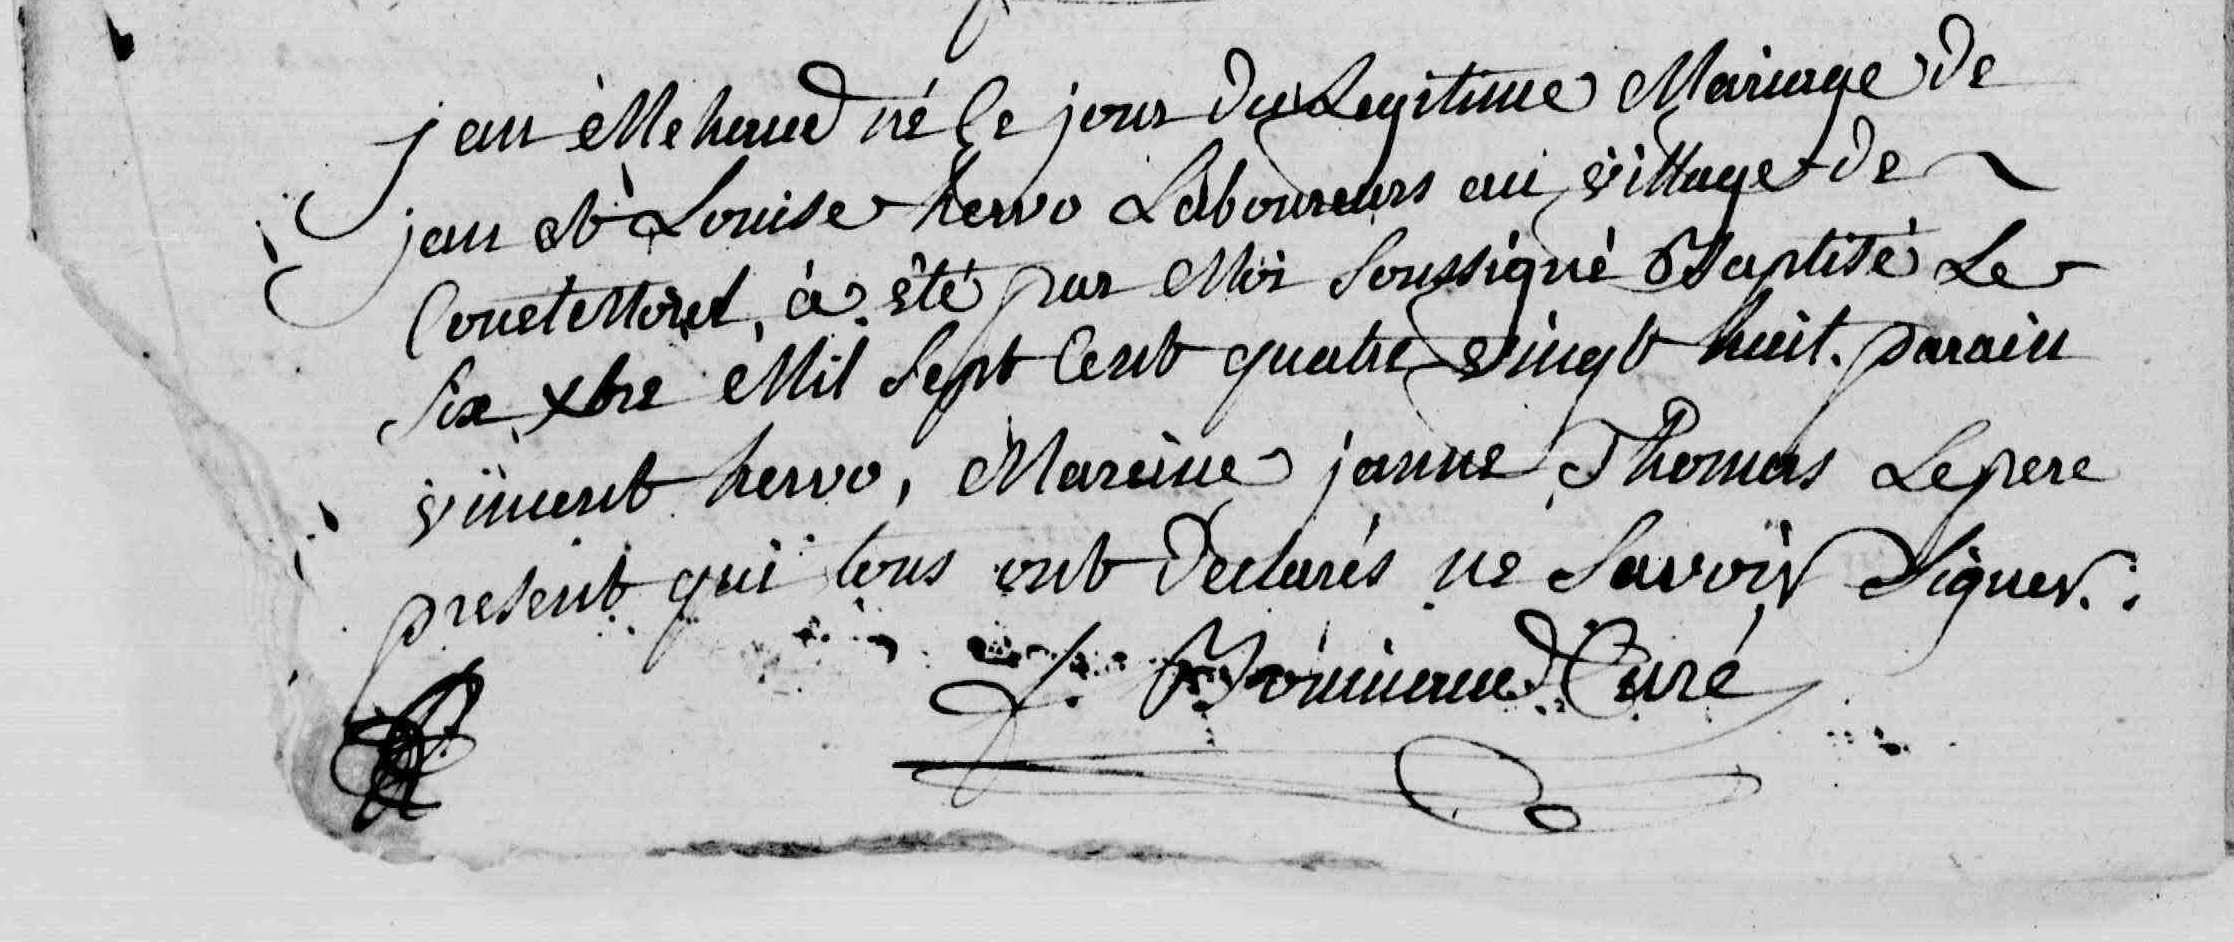 jan Mehaud né Ce jour du Legitime Mariage de
jan et Louise hervo Laboureurs au village de
à été par Moi Soussigné Baptisé Le
Six xbre Mil Sept Cent quatre vingt huit. parain
vincent hervo, Mareine janne Thomas Le pere
present qui tous ont declarés ne Savoir Signer.
Curé